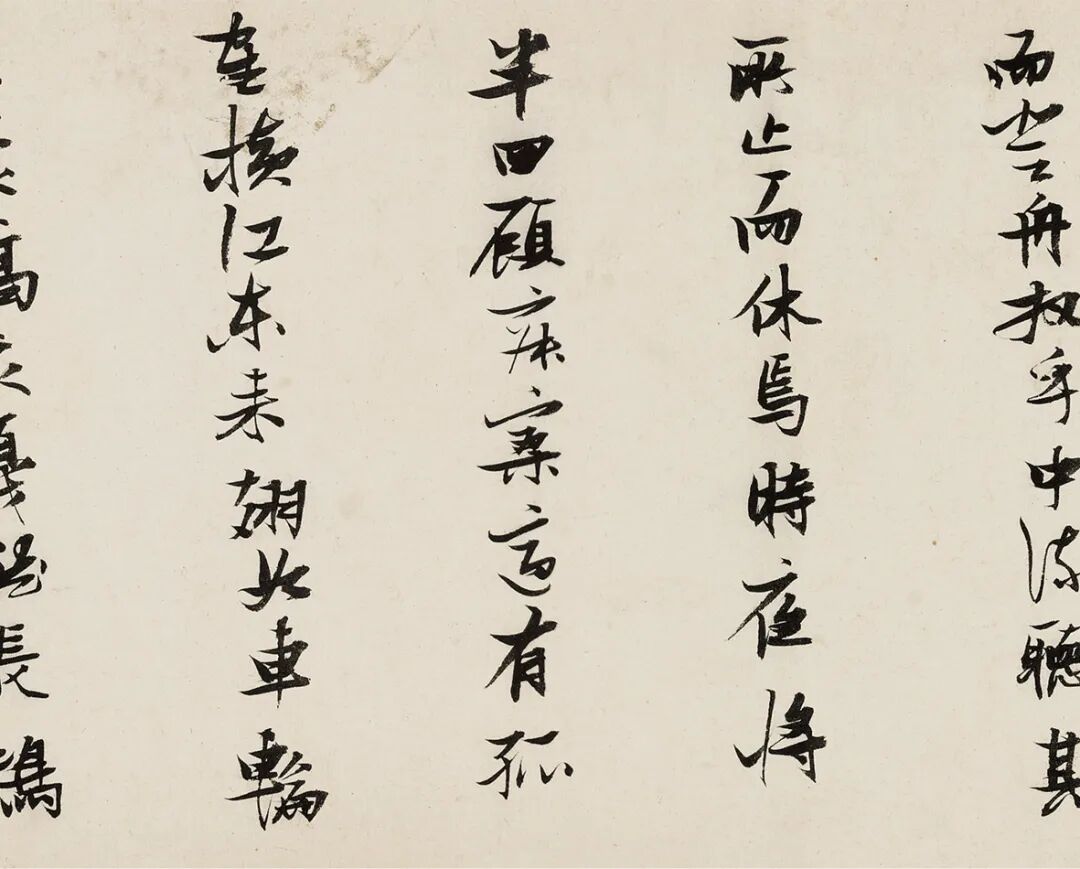 而登舟放乎中流聽其
所止而休焉時夜將
半四顧寂寥適有孤
隺橫江東來翅如車輪
裳縞衣戛然長鳴